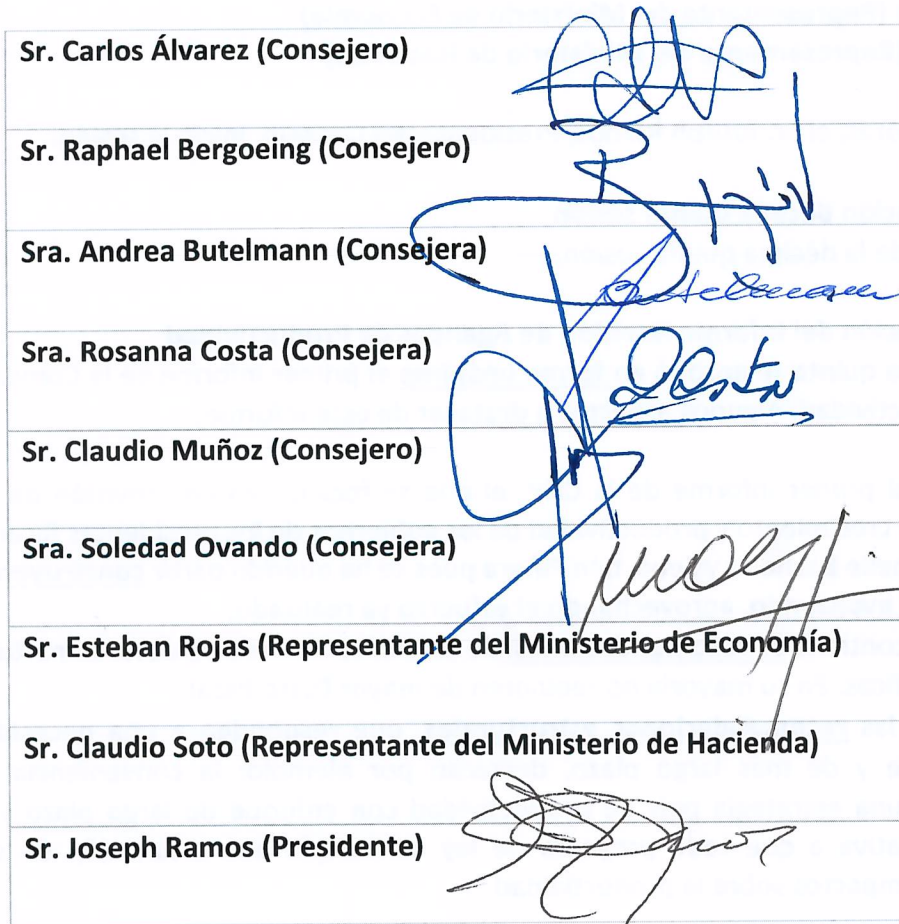 Sr. Carlos Álvarez (Consejero)
Sr. Raphael Bergoeing (Consejero)
Sra. Andrea Butelmann (Consejera)
Butelmann
Sra. Rosanna Costa (Consejera)
RCosta
Sr. Claudio Muñoz (Consejero)
Sra. Soledad Ovando (Consejera)
Sr. Esteban Rojas (Representante del Ministerio de Economía)
Sr. Claudio Soto (Representante del Ministerio de Hacienda)
Sr. Joseph Ramos (Presidente)